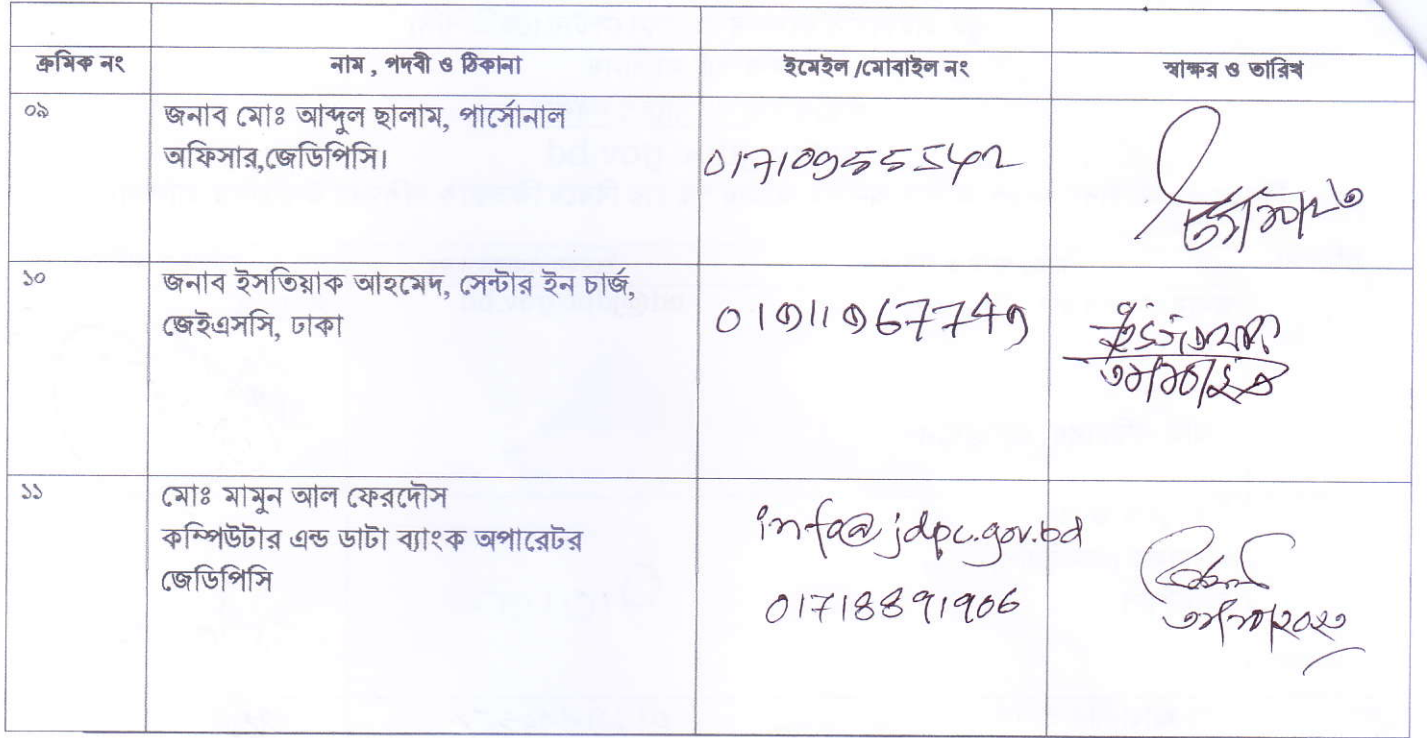 ক্রমিক নং নাম , পদবী ও ঠিকানা ইমেইল /মোবাইল নং স্বাক্ষর ও তারিখ
০৯ জনাব মোঃ আব্দুল ছালাম, পার্সোনাল
অফিসার,জেডিপিসি।
১০ জনাব ইসতিয়াক আহমেদ, সেন্টার ইন চার্জ,
জেইএসসি, ঢাকা
১১ মোঃ মামুন আল ফেরদৌস
কম্পিউটার এন্ড ডাটা ব্যাংক অপারেটর
জেডিপিসি
info@jdpc.gov.bd
01718891906